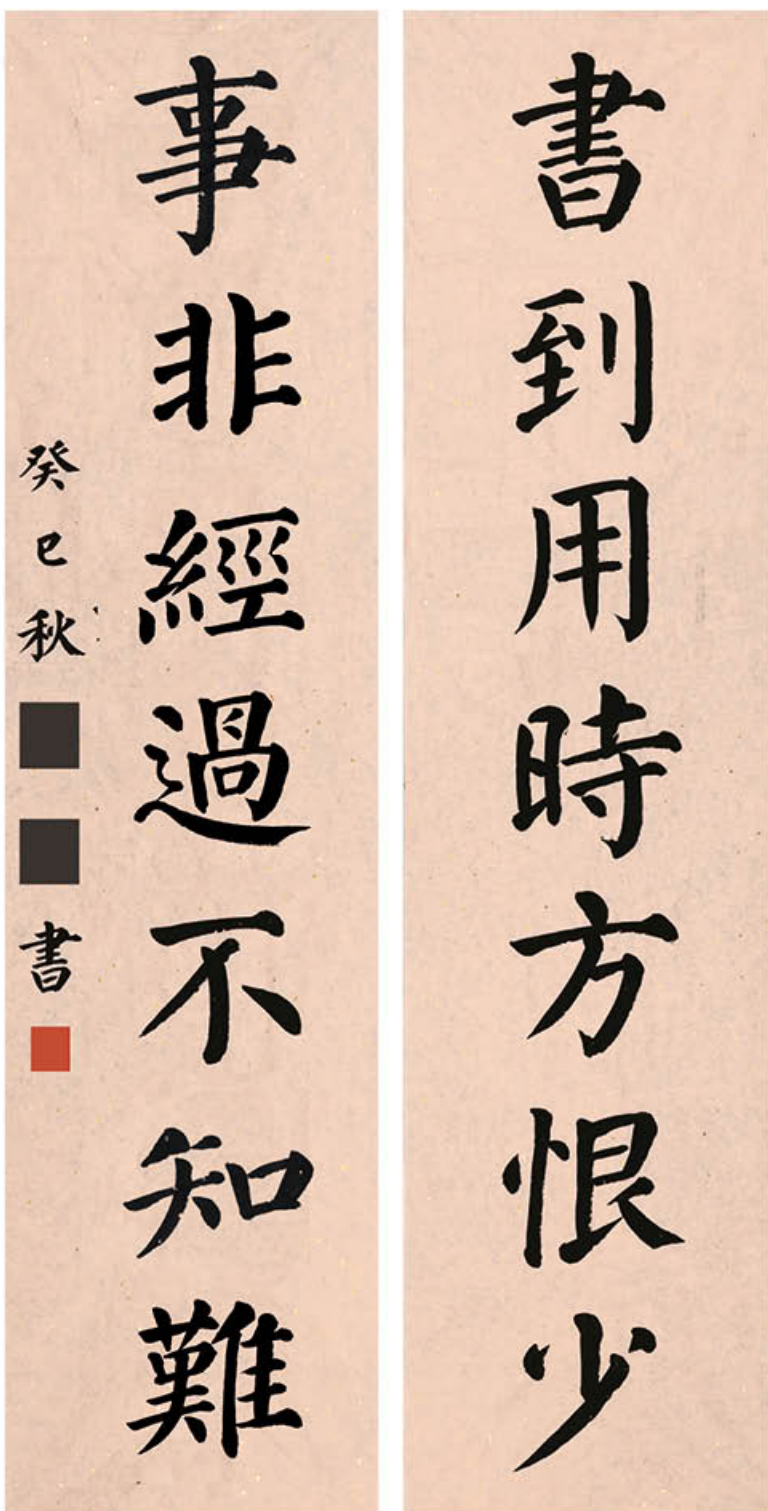 書到用時方恨少
事非經過不知難
癸巳秋
書